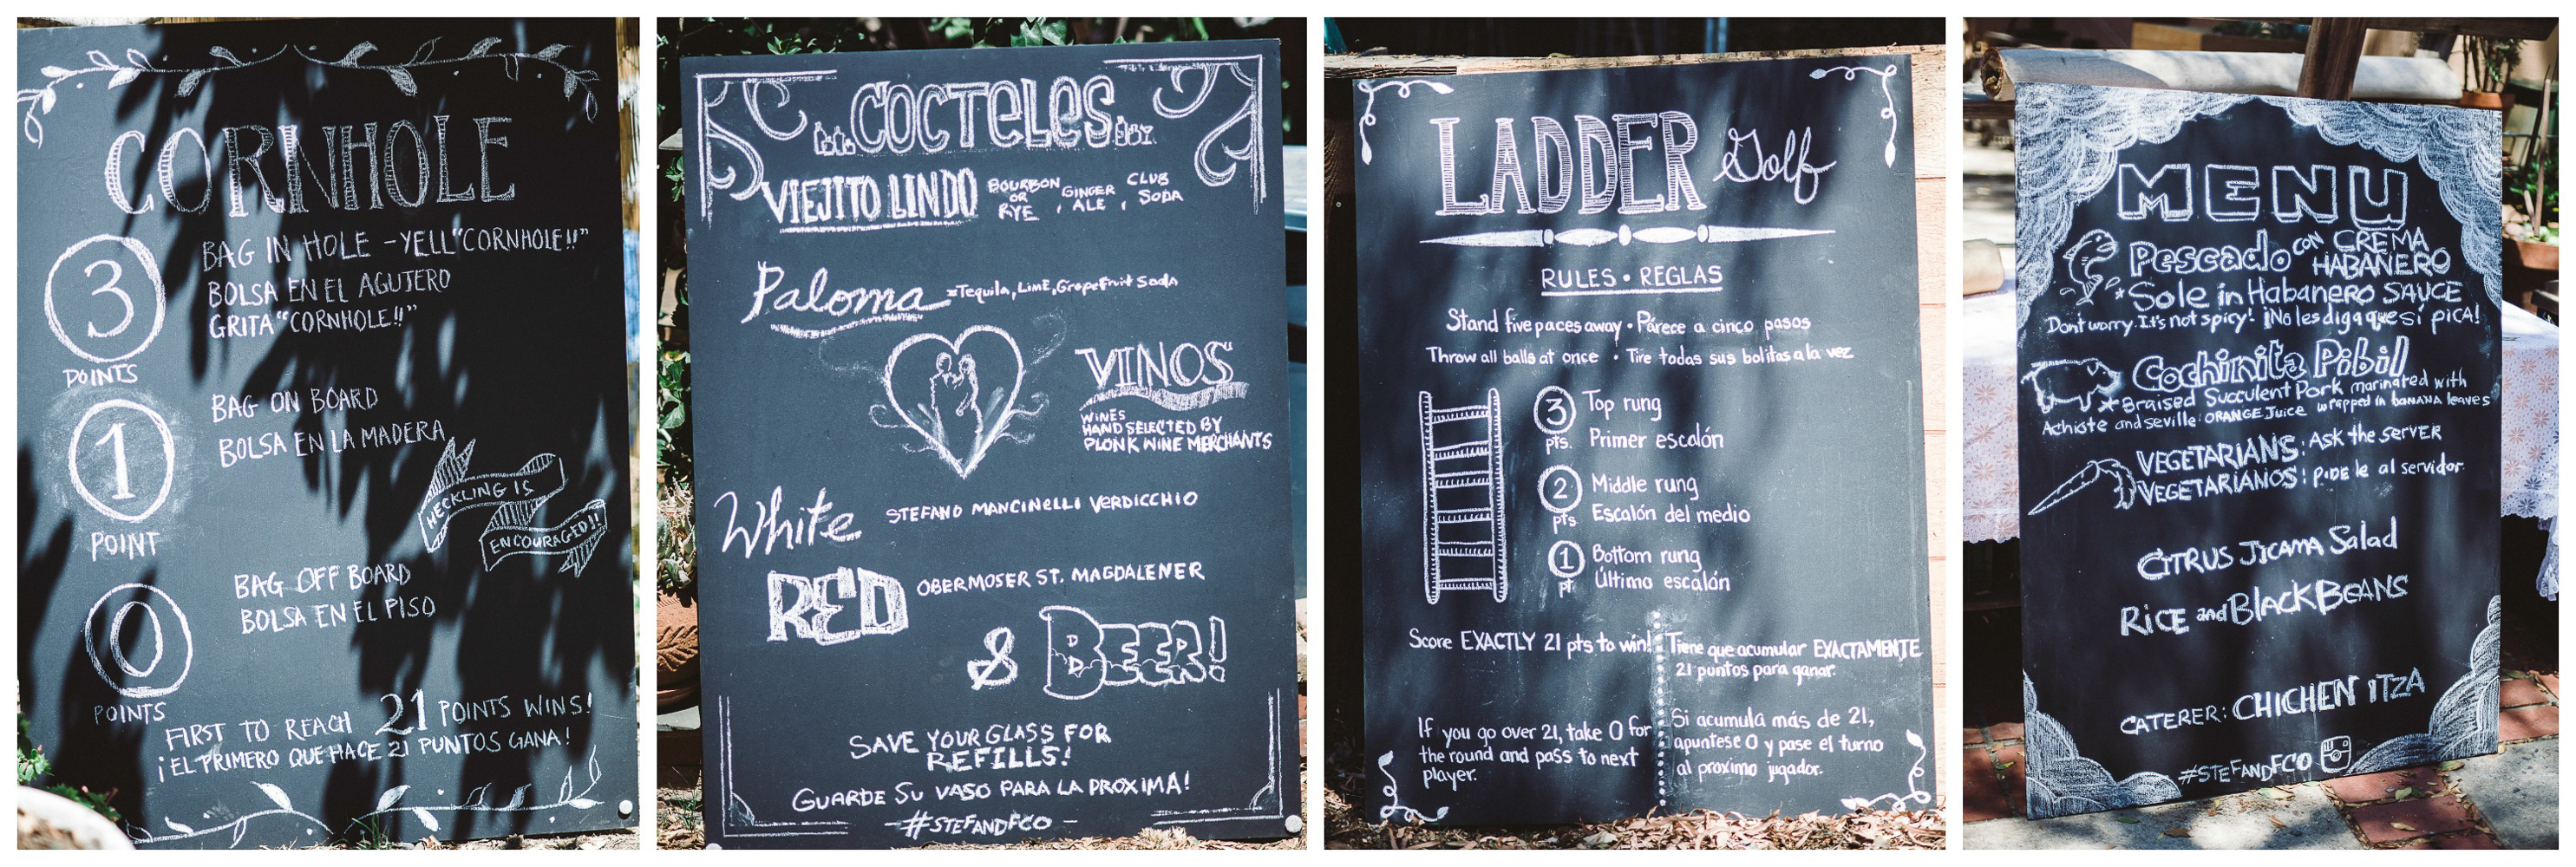 CORNHOLE
3
POINTS
BAG IN HOLE - YELL "CORNHOLE!!"
BOLSA EN EL AGUJERO
GRITA "CORNHOLE!!"
1
POINT
BAG ON BOARD
BOLSA EN LA MADERA
HECKLING IS
ENCOURAGED!!
0
POINTS
BAG OFF BOARD
BOLSA EN EL PISO
FIRST TO REACH 21 POINTS WINS!
¡EL PRIMERO QUE HACE 21 PUNTOS GANA!
COCTELES
VIEJITO LINDO
BOURBON OR RYE, GINGER ALE, CLUB SODA
Paloma = Tequila, LIME, Grapefruit Soda
VINOS
WINES
HAND SELECTED BY
PLONK WINE MERCHANTS
White STEFANO MANCINELLI VERDICCHIO
RED OBERMOSER ST. MAGDALENER
& BEER!
SAVE YOUR GLASS FOR
REFILLS!
GUARDE SU VASO PARA LA PROXIMA!
- #STEFANDFCO -
LADDER Golf
RULES • REGLAS
Stand five paces away • Párece a cinco pasos
Throw all balls at once • Tire todas sus bolitas a la vez
3 pts. Top rung
Primer escalón
2 pts Middle rung
Escalón del medio
1 pt Bottom rung
Último escalón
Score EXACTLY 21 pts to win!
Tiene que acumular EXACTAMENTE
21 puntos para ganar.
If you go over 21, take 0 for
the round and pass to next
player.
Si acumula más de 21,
apuntese 0 y pase el turno
al proximo jugador.
MENU
Pescado CON CREMA
HABANERO
*Sole in Habanero SAUCE
Dont worry. It's not spicy! ¡No les diga que sí pica!
Cochinita Pibil
*Braised Succulent Pork marinated with
Achiote and seville ORANGE Juice wrapped in banana leaves
VEGETARIANS: Ask the SERVER
VEGETARIANOS: PIDE le al servidor.
CITRUS JICAMA Salad
RICE and BLACK BEANS
CATERER: CHICHEN ITZA
#STEFANDFCO